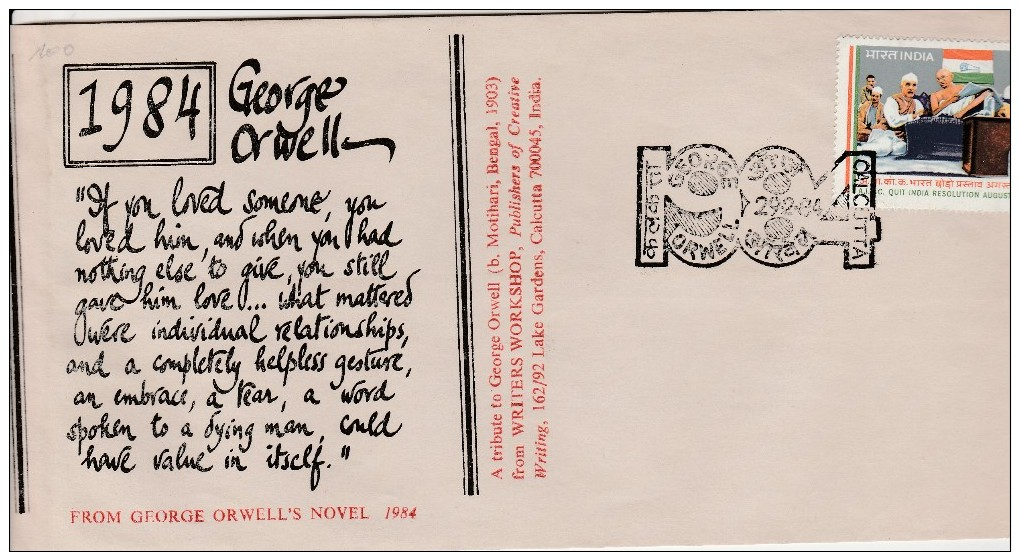 1984
George
Orwell
"If you loved someone, you
loved him, and when you had
nothing else to give, you still
gave him love... what mattered
were individual relationships,
and a completely helpless gesture,
an embrace, a tear, a word
spoken to a dying man, could
have value in itself."
FROM GEORGE ORWELL'S NOVEL 1984
A tribute to George Orwell (b. Motihari, Bengal, 1903)
from WRITERS WORKSHOP, Publishers of Creative
Writing, 162/92 Lake Gardens, Calcutta 700045, India.
कलकत्ता
GEORGE
ORWELL
CALCUTTA
भारत INDIA
का.क. भारत छोड़ो प्रस्ताव अगस्त
QUIT INDIA RESOLUTION AUGUST